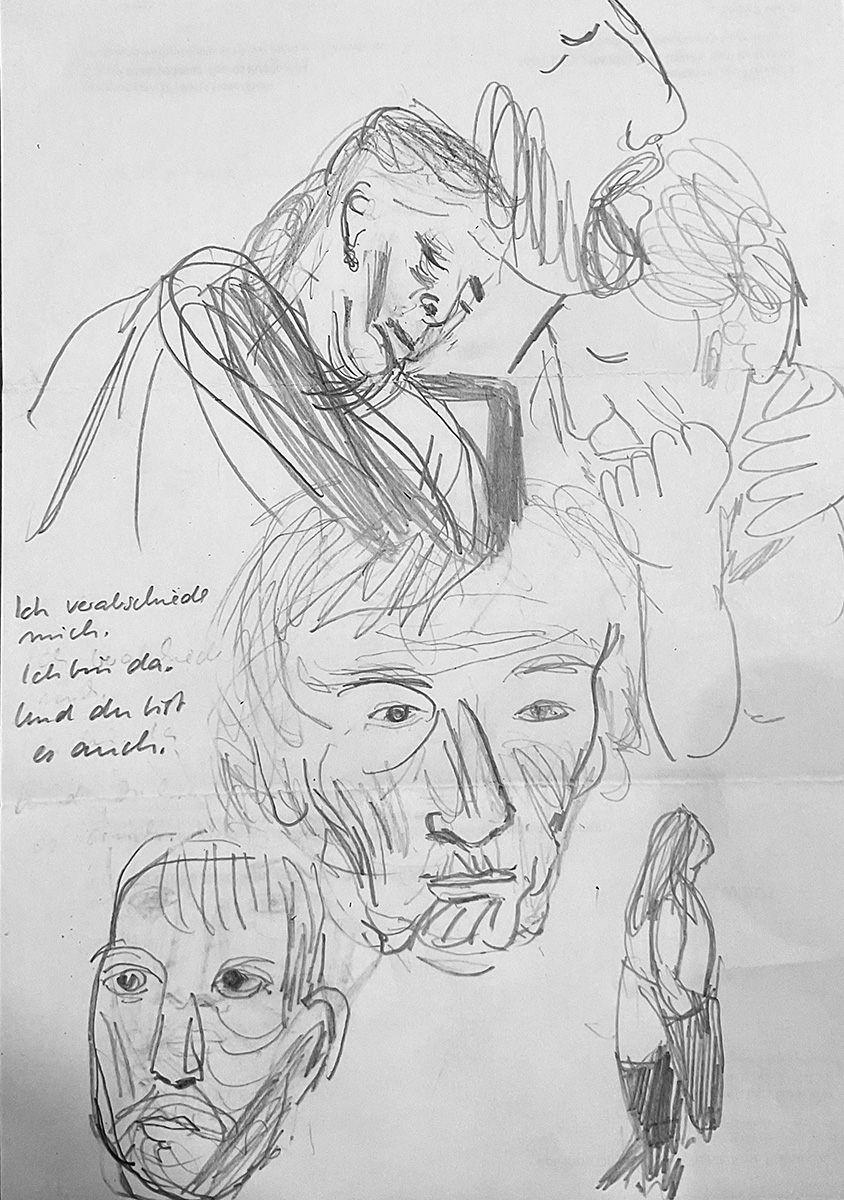 Ich verabschiede
mich.
Ich bin da.
Und du bist
es auch.